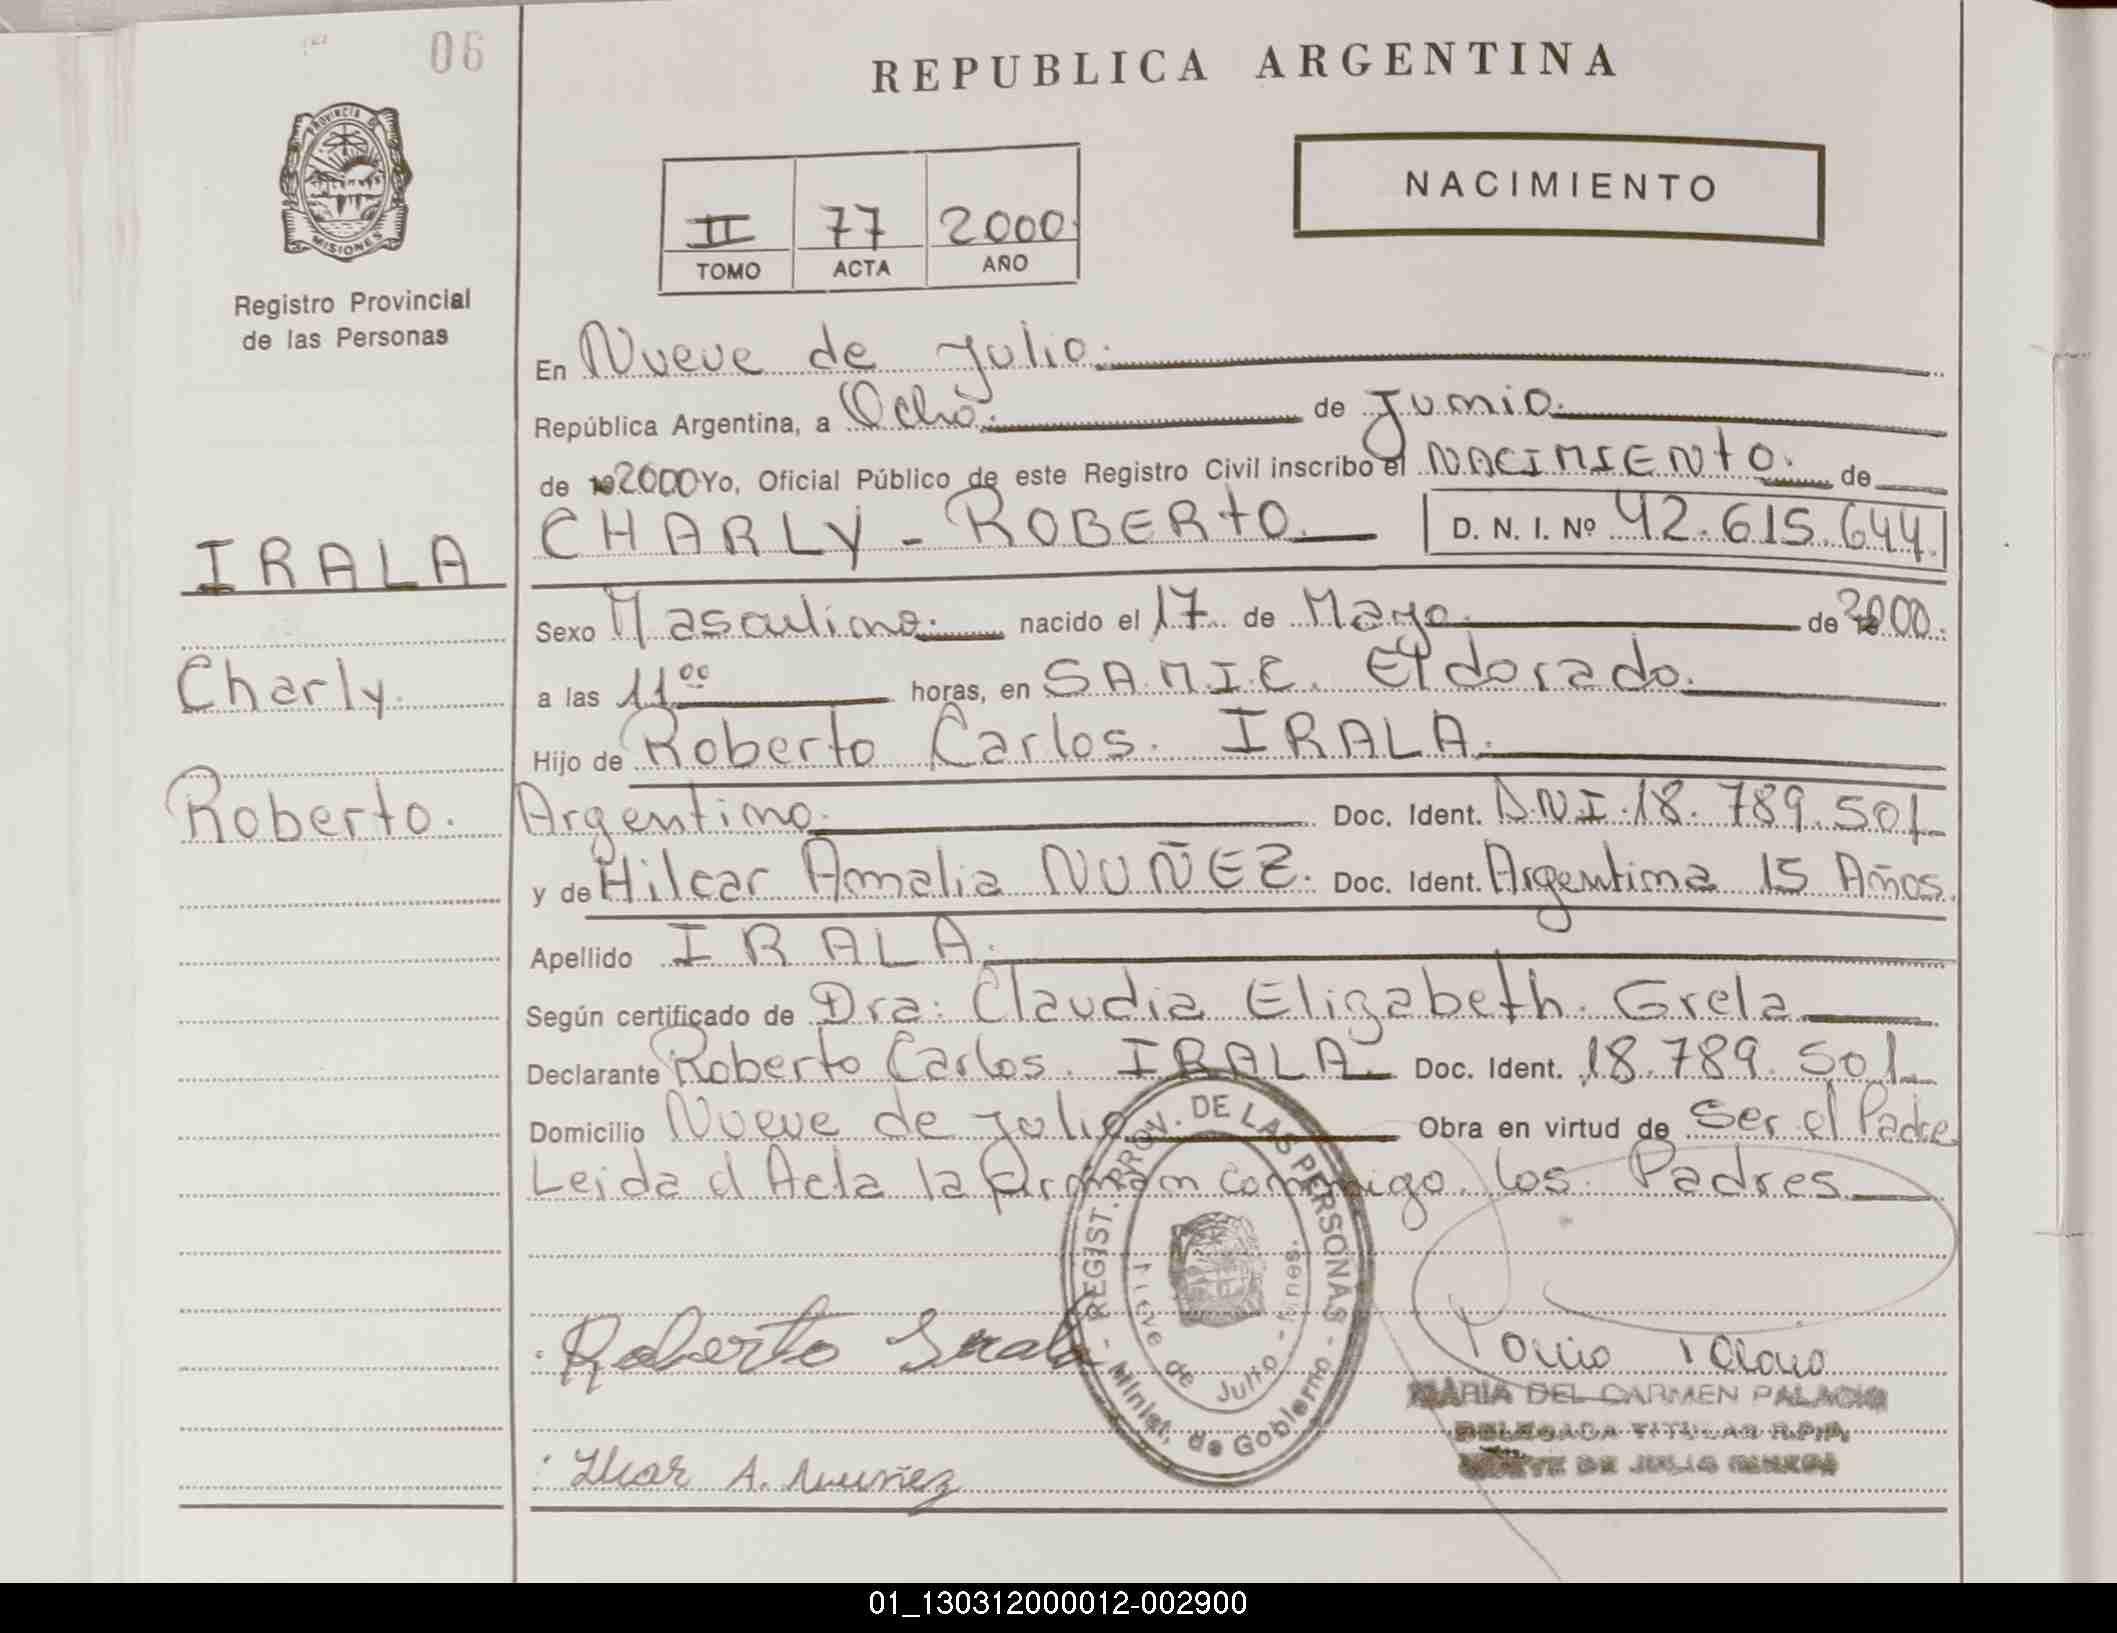 06
REPUBLICA ARGENTINA
PROVINCIA DE
MISIONES
Registro Provincial
de las Personas
NACIMIENTO
II 77 2000
TOMO ACTA AÑO
En Nueve de Julio.
República Argentina, a Ocho. de Junio.
de 192000 Yo, Oficial Público de este Registro Civil inscribo el NACIMIENTO. de
CHARLY - ROBERTO. D. N. I. Nº 42.615.644.
IRALA
Sexo Masculino. nacido el 17 de Mayo. de 2000.
Charly.
a las 11 00 horas, en SAMIC. Eldorado.
Hijo de Roberto Carlos. IRALA.
Roberto.
Argentino. Doc. Ident. D.N.I. 18.789.501
y de Hilcar Amalia NUÑEZ. Doc. Ident. Argentina 15 Años.
Apellido IRALA.
Según certificado de Dra: Claudia Elizabeth. Grela
Declarante Roberto Carlos. IRALA. Doc. Ident. 18.789.501
Domicilio Nueve de Julio Obra en virtud de Ser el Padre
Leida el Acta la firman conmigo. los Padres
REGIST. PROV. DE LAS PERSONAS
Nueve de Julio - Mnes.
- Minist. de Gobierno -
Roberto Irala
MARIA DEL CARMEN PALACIO
DELEGADA TITULAR R.P.P.
NUEVE DE JULIO
A. Nuñez
01_130312000012-002900